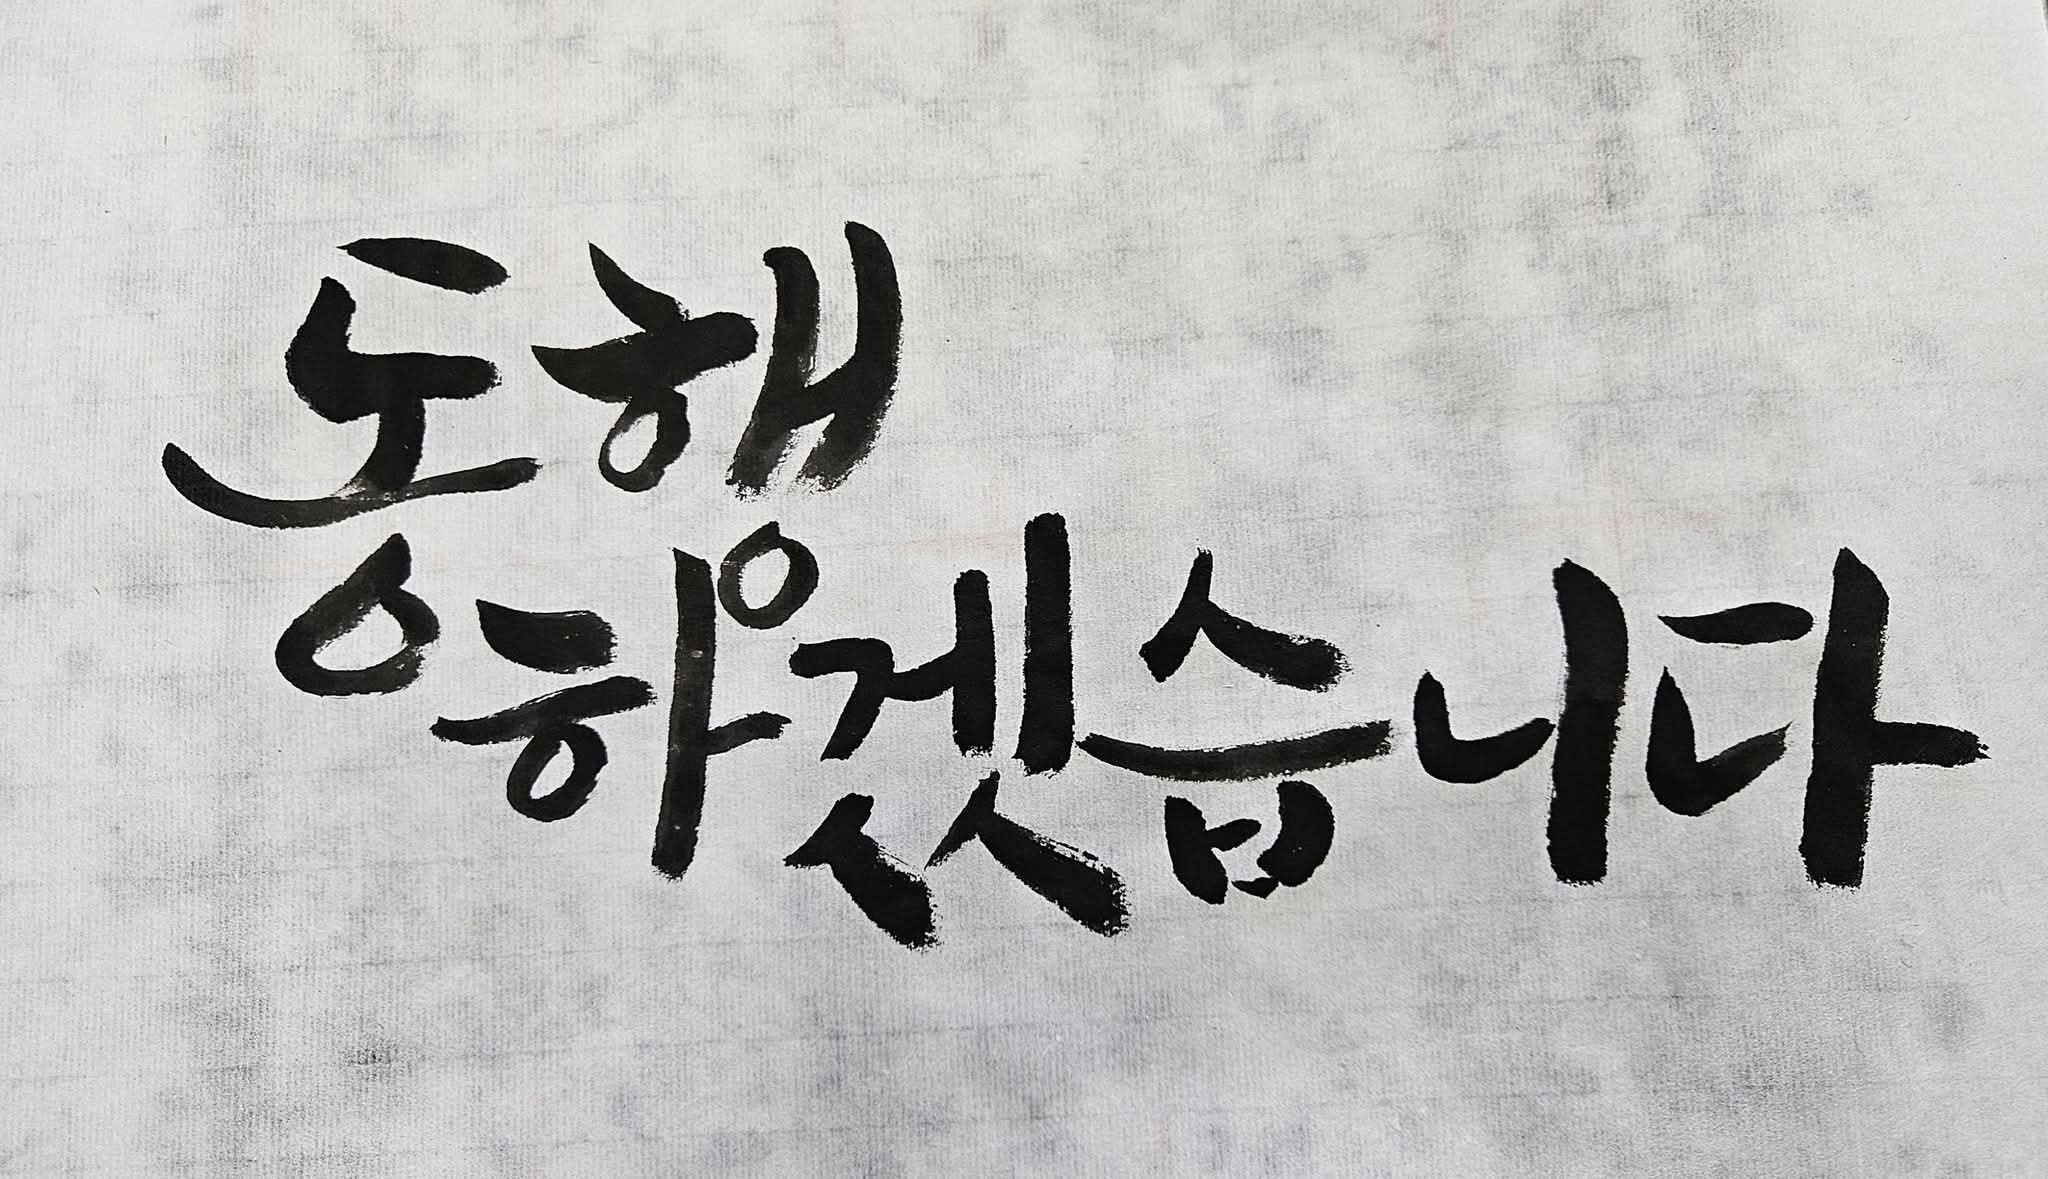 동행
하겠습니다